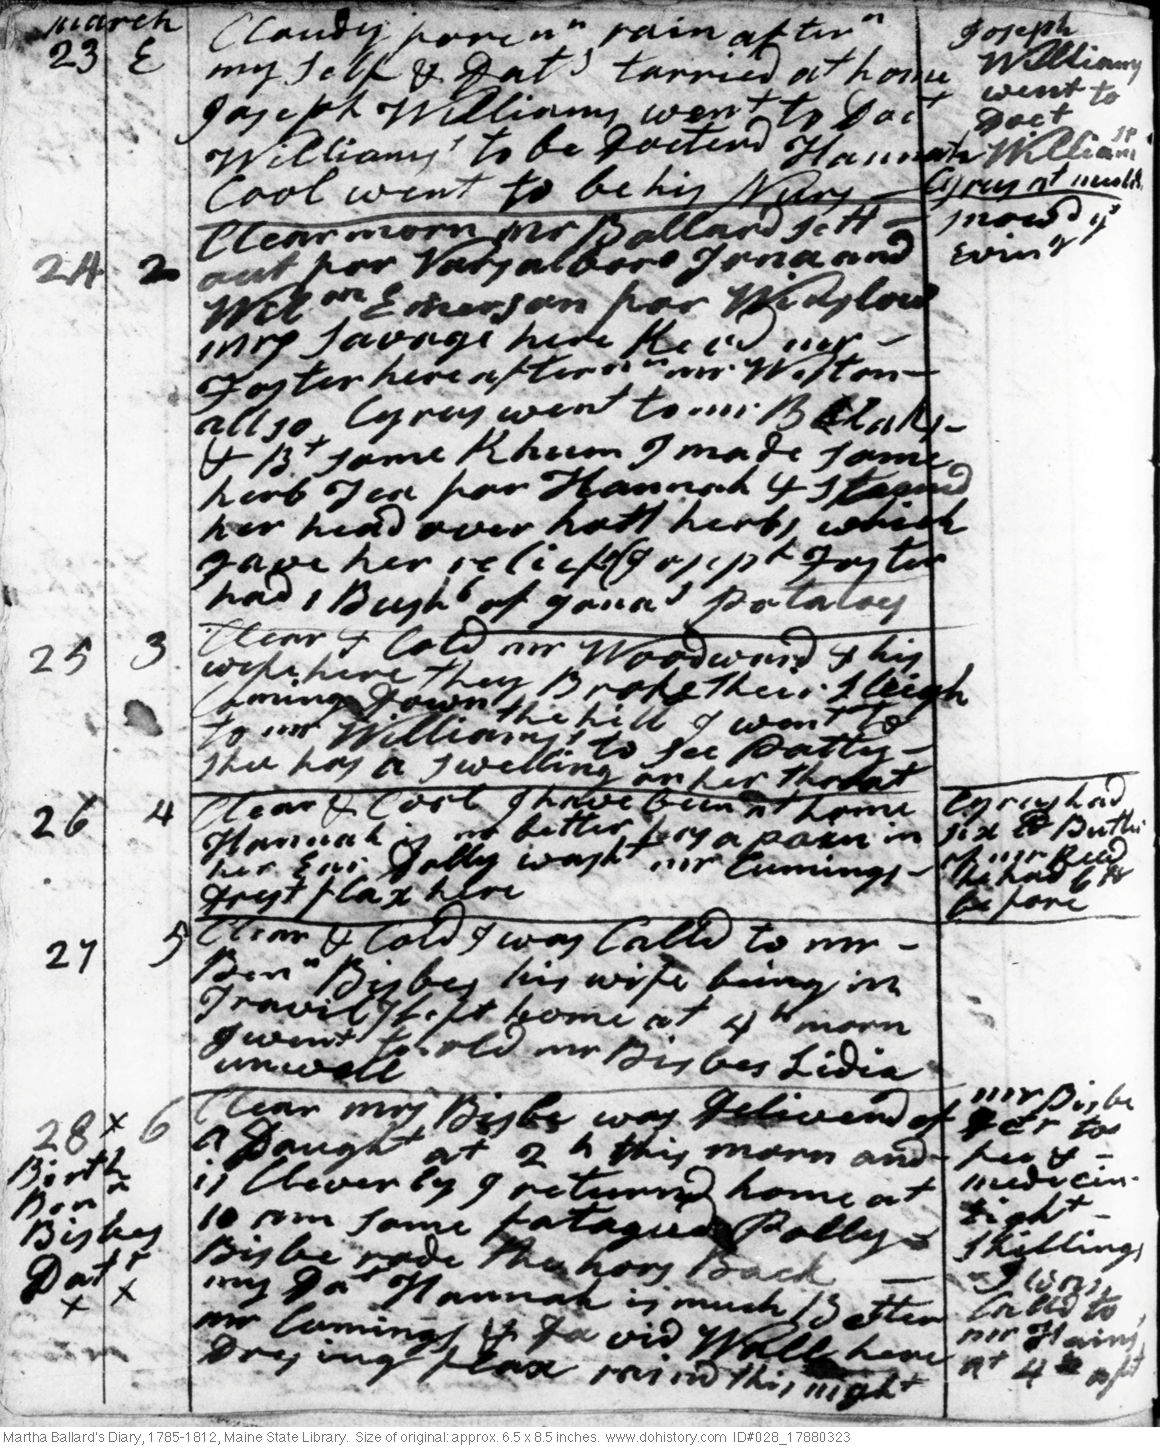 march
23 E Cloudy foren n rain after n
my self & Dat s tarried at home
Joseph Williams went to Doct
Williams' to be Docterd Hannah
Cool went to be his Nurs
Joseph
Williams
went to
Doct
Williams
Cyrus at
snowd ys
Evin g
24 2 Clear morn mr Ballard sett
out for Vassalboro Jona and
Wil on Emerson for Winslow
mrs Savage here mr
Foster here after n mr Weston
allso Cyrus went to mr
& B t some Rhum I made some
herb Tea for Hannah & steamd
her head over hott herbs which
gave her relief Joseph Foster
had 1 Bush l of Jona s Potatoes
25 3 Clear & Cold mr Woodward & his
wife here they Broke their Sleigh
Coming Down the hill I went to
to mr Williams' to see Patty
shee has a swelling on her throat
26 4 Clear & Cool I have been at home
Hannah is no better has a pain in
her Ear Dolly washt mr Cumings
Drest flax here
Cyrus had
six lb Butter
of mr Reed
he had 6 lb
before
27 5 Clear & Cold I was Calld to mr
Ben n Bisbes his wife being in
Travil I left home at 4 h morn
I went to old mr Bisbes Lidia
unwell
28 x 6 Clear mrs Bisbe was Deliverd of
a Daught at 2 h this morn and
is Cleverly I returnd home at
10 mm some fatagued Polly
Bisbe rode the hors Back
my Dat Hannah is much Better
mr Cumings & David Wall here
Dresing flax raind this night
Birth
Ben n
Bisbes
Dat r
x x
mr Bisbe
Det r to
fee &
medicin
Eight
shillings
I was
Calld to
mr Hains
at 4 aft
Martha Ballard's Diary, 1785-1812, Maine State Library. Size of original: approx. 6.5 x 8.5 inches. www.dohistory.com ID#028_17880323